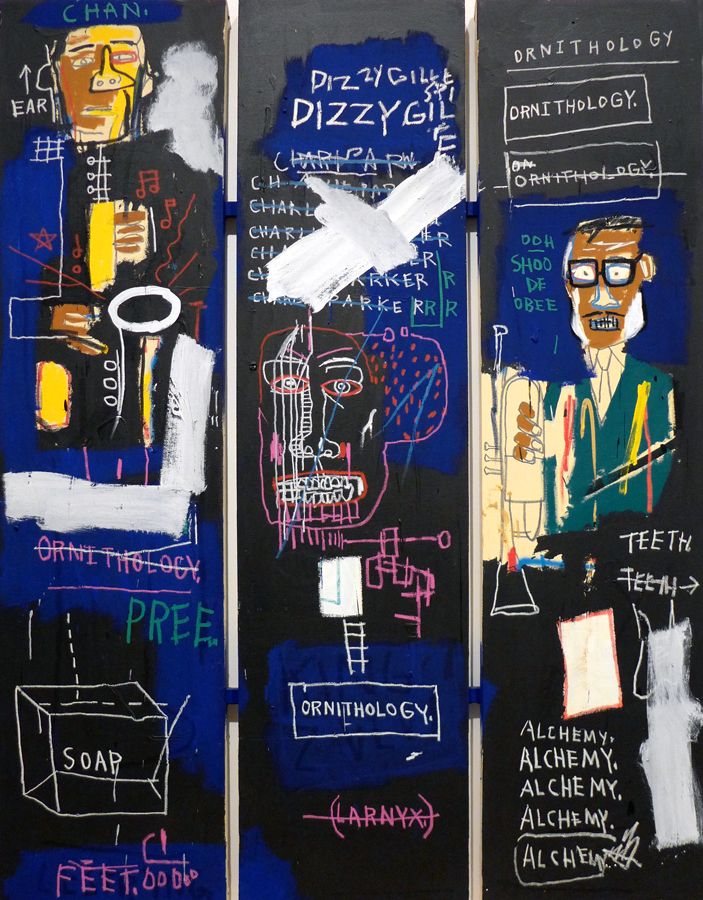 CHAN.
EAR
ORNITHOLOGY.
PREE.
SOAP
FEET.
DIZZYGILLE
SPI
DIZZYGIL
CHARLPA
CH
CHARL
CHARL ER
CHA ER
ARKER
PARKERRR
R
R
ORNITHOLOGY.
(LARNYX.)
ORNITHOLOGY
ORNITHOLOGY.
ORNITHOLOGY.
OOH
SHOO
DE
OBEE
TEETH
TEETH→
ALCHEMY.
ALCHEMY.
ALCHEMY.
ALCHEMY.
ALCHEMY